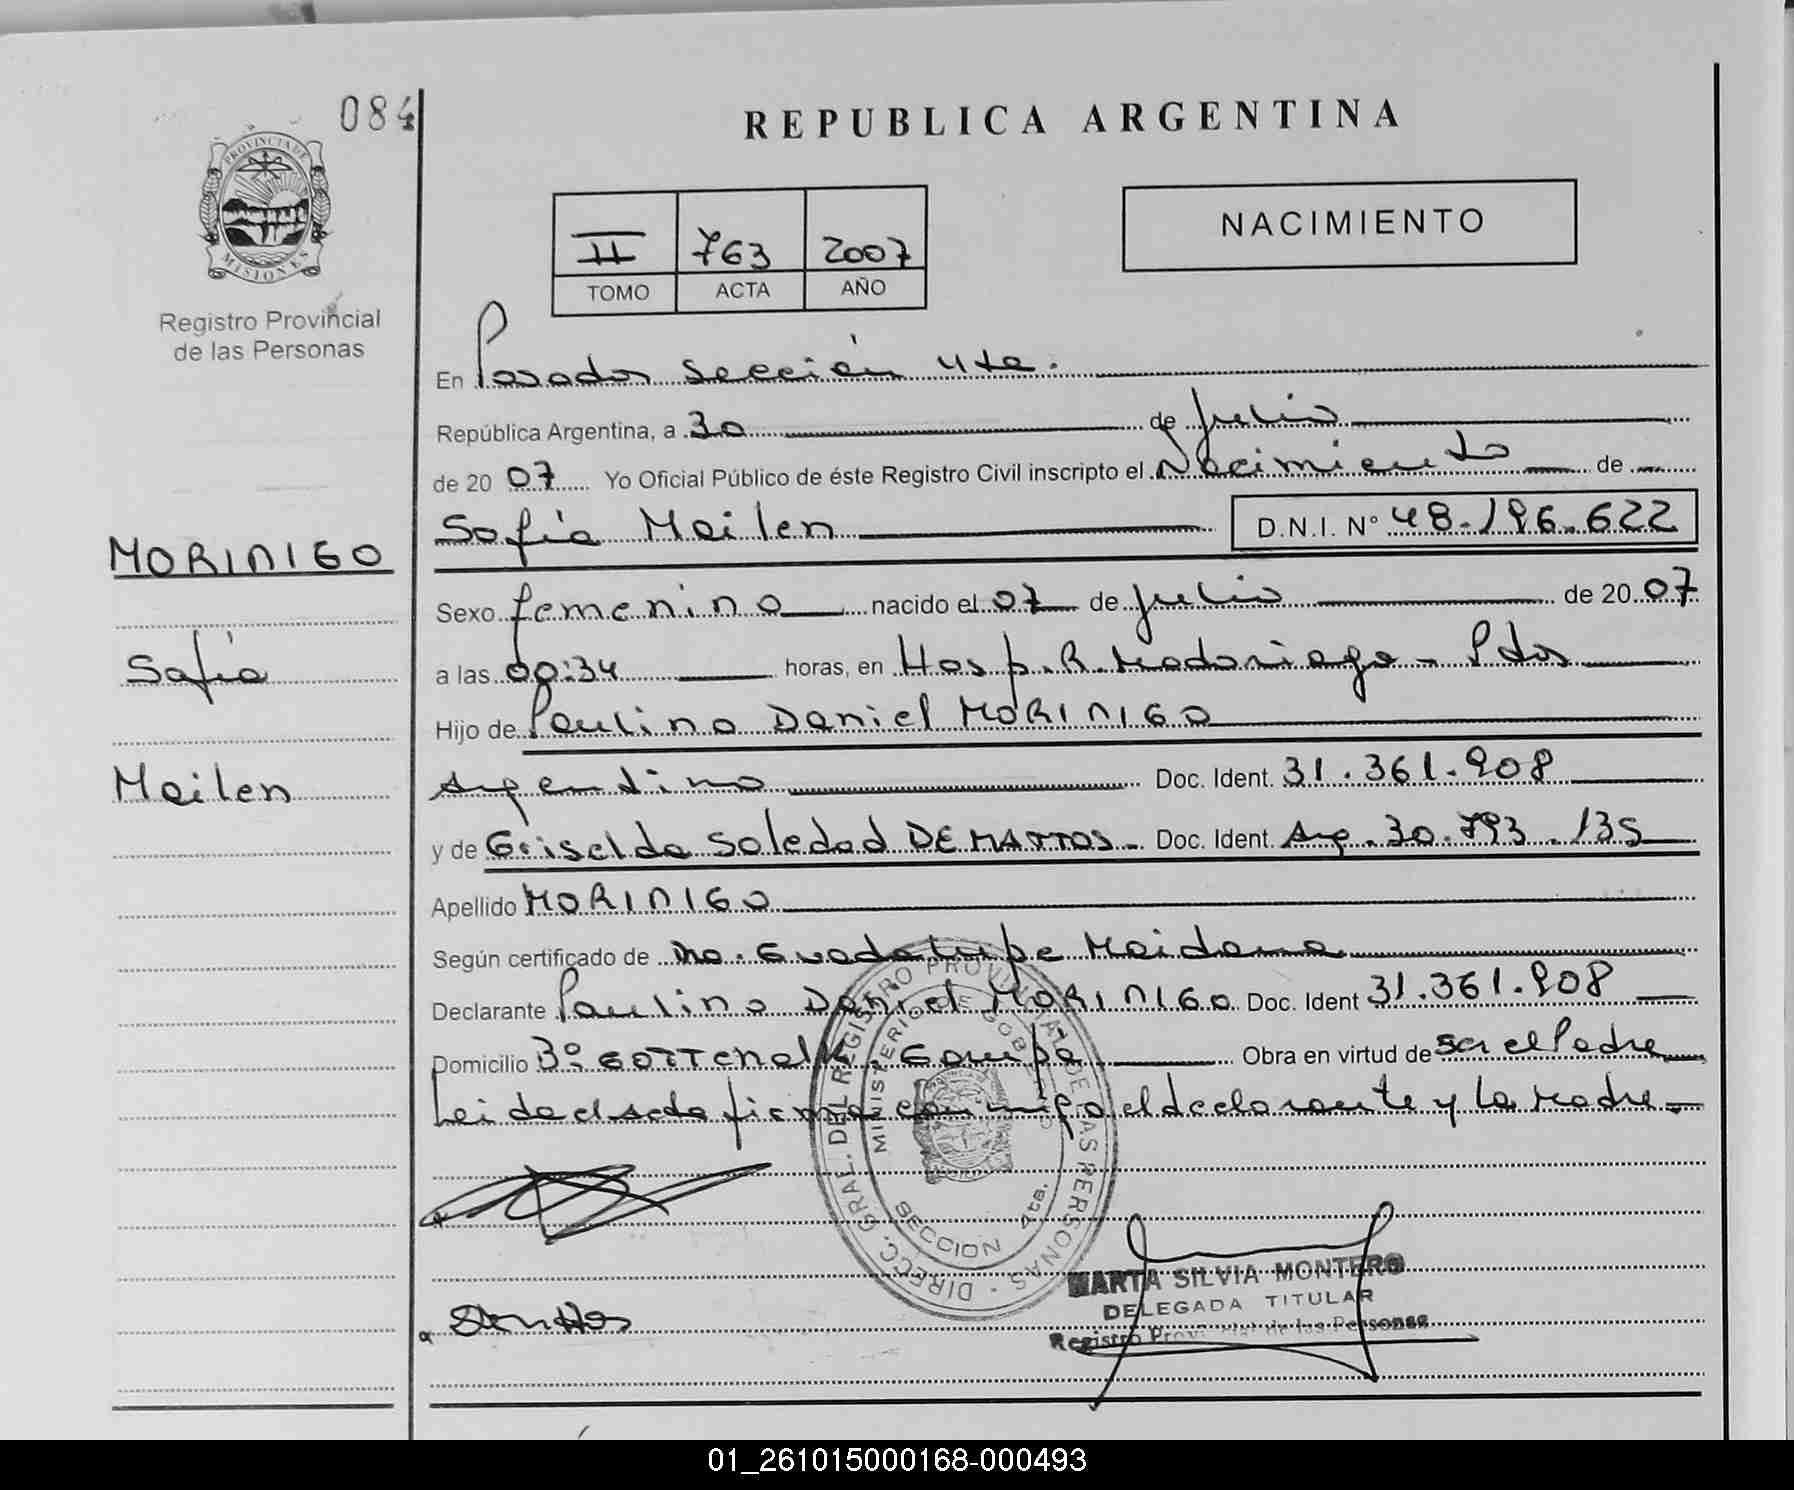 084
PROVINCIA DE
MISIONES
Registro Provincial
de las Personas
MORINIGO
Sofía
Meilen
REPUBLICA ARGENTINA
II 763 2007
TOMO ACTA AÑO
NACIMIENTO
En Posadas Sección 4ta.
República Argentina, a 30 de Julio
de 2007 Yo Oficial Público de éste Registro Civil inscripto el Nacimiento de
Sofía Meilen D.N.I. N° 48.196.622
Sexo femenino nacido el 07 de Julio de 2007
a las 00:34 horas, en Hosp. R. Madariaga - Pdas
Hijo de Paulino Daniel MORINIGO
Argentino Doc. Ident. 31.361.908
y de Griselda Soledad DE MATTOS - Doc. Ident. Arg. 30.793.135
Apellido MORINIGO
Según certificado de Ma. Guadalupe Maidana
Declarante Paulino Daniel MORINIGO Doc. Ident 31.361.908
Domicilio B° Obra en virtud de ser el Padre
Leida el acta firma conmigo el declarante y la Madre -
DIRECC. GRAL. DEL REGISTRO PROVINCIAL DE LAS PERSONAS
MINISTERIO DE GOBIERNO
SECCION 4ta.
MARTA SILVIA MONTERO
DELEGADA TITULAR
Registro Provincial de las Personas
01_261015000168-000493